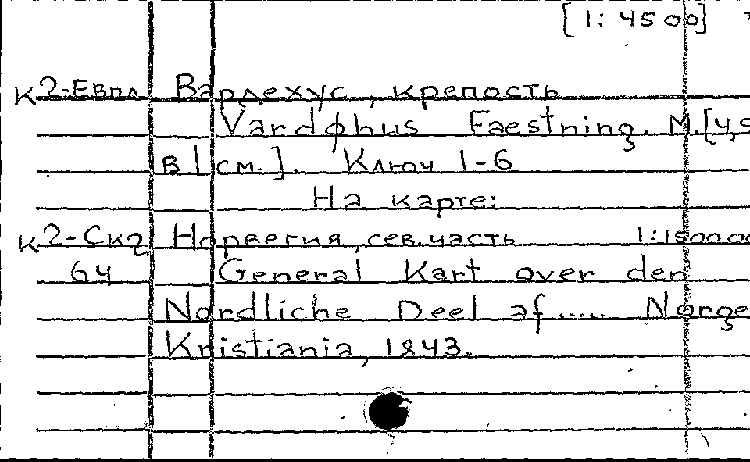 [1: 4500]
К2-Евпл Вардехус, крепость
Vardφhus Faestning. М.[4,5
в 1 см.]. Ключ 1-6
На карте:
К2-Ск2 Норвегия, сев. часть 1:150000
64 General Kart over den
Nordliche Deel af..... Norge
Kristiania, 1843.